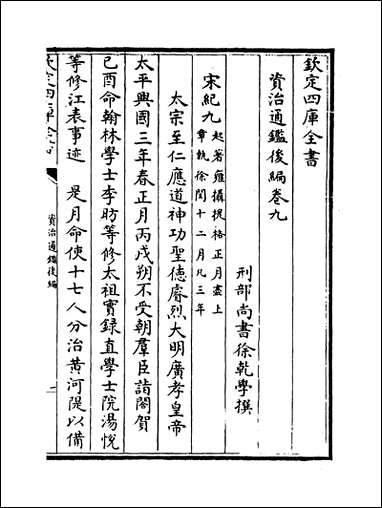 欽定四庫全書
資治通鑑後編卷九
刑部尚書徐乾學撰
宋紀九起著雍攝提格正月盡上
章執徐閏十二月凡三年
太宗至仁應道神功聖德睿烈大明廣孝皇帝
太平興國三年春正月丙戌朔不受朝羣臣詣閤賀
己酉命翰林學士李昉等修太祖實錄直學士院湯悅
等修江表事迹　是月命使十七人分治黃河隄以備
欽定四庫全書
資治通鑑後編
一